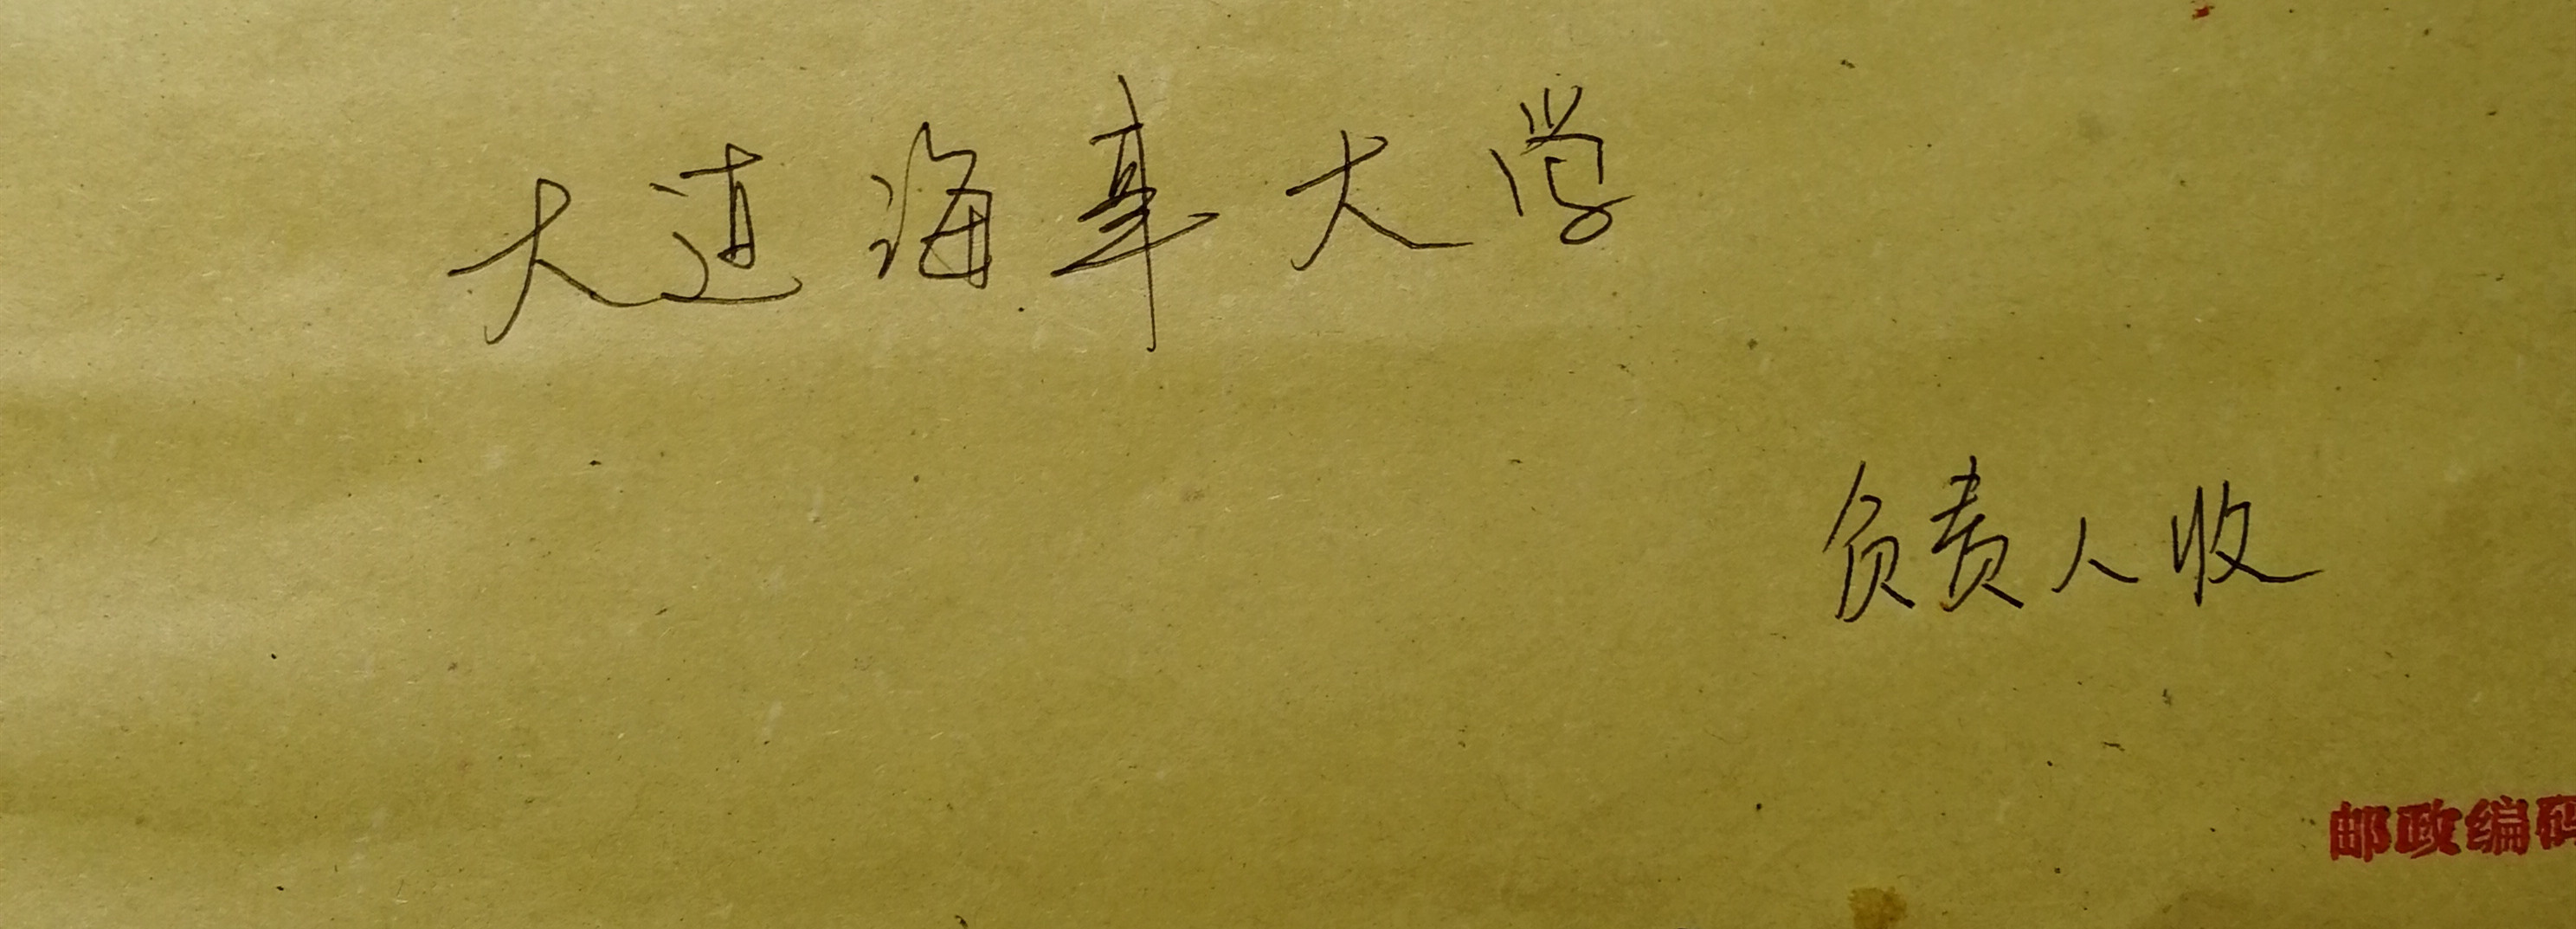 大连海事大学
负责人收
邮政编码